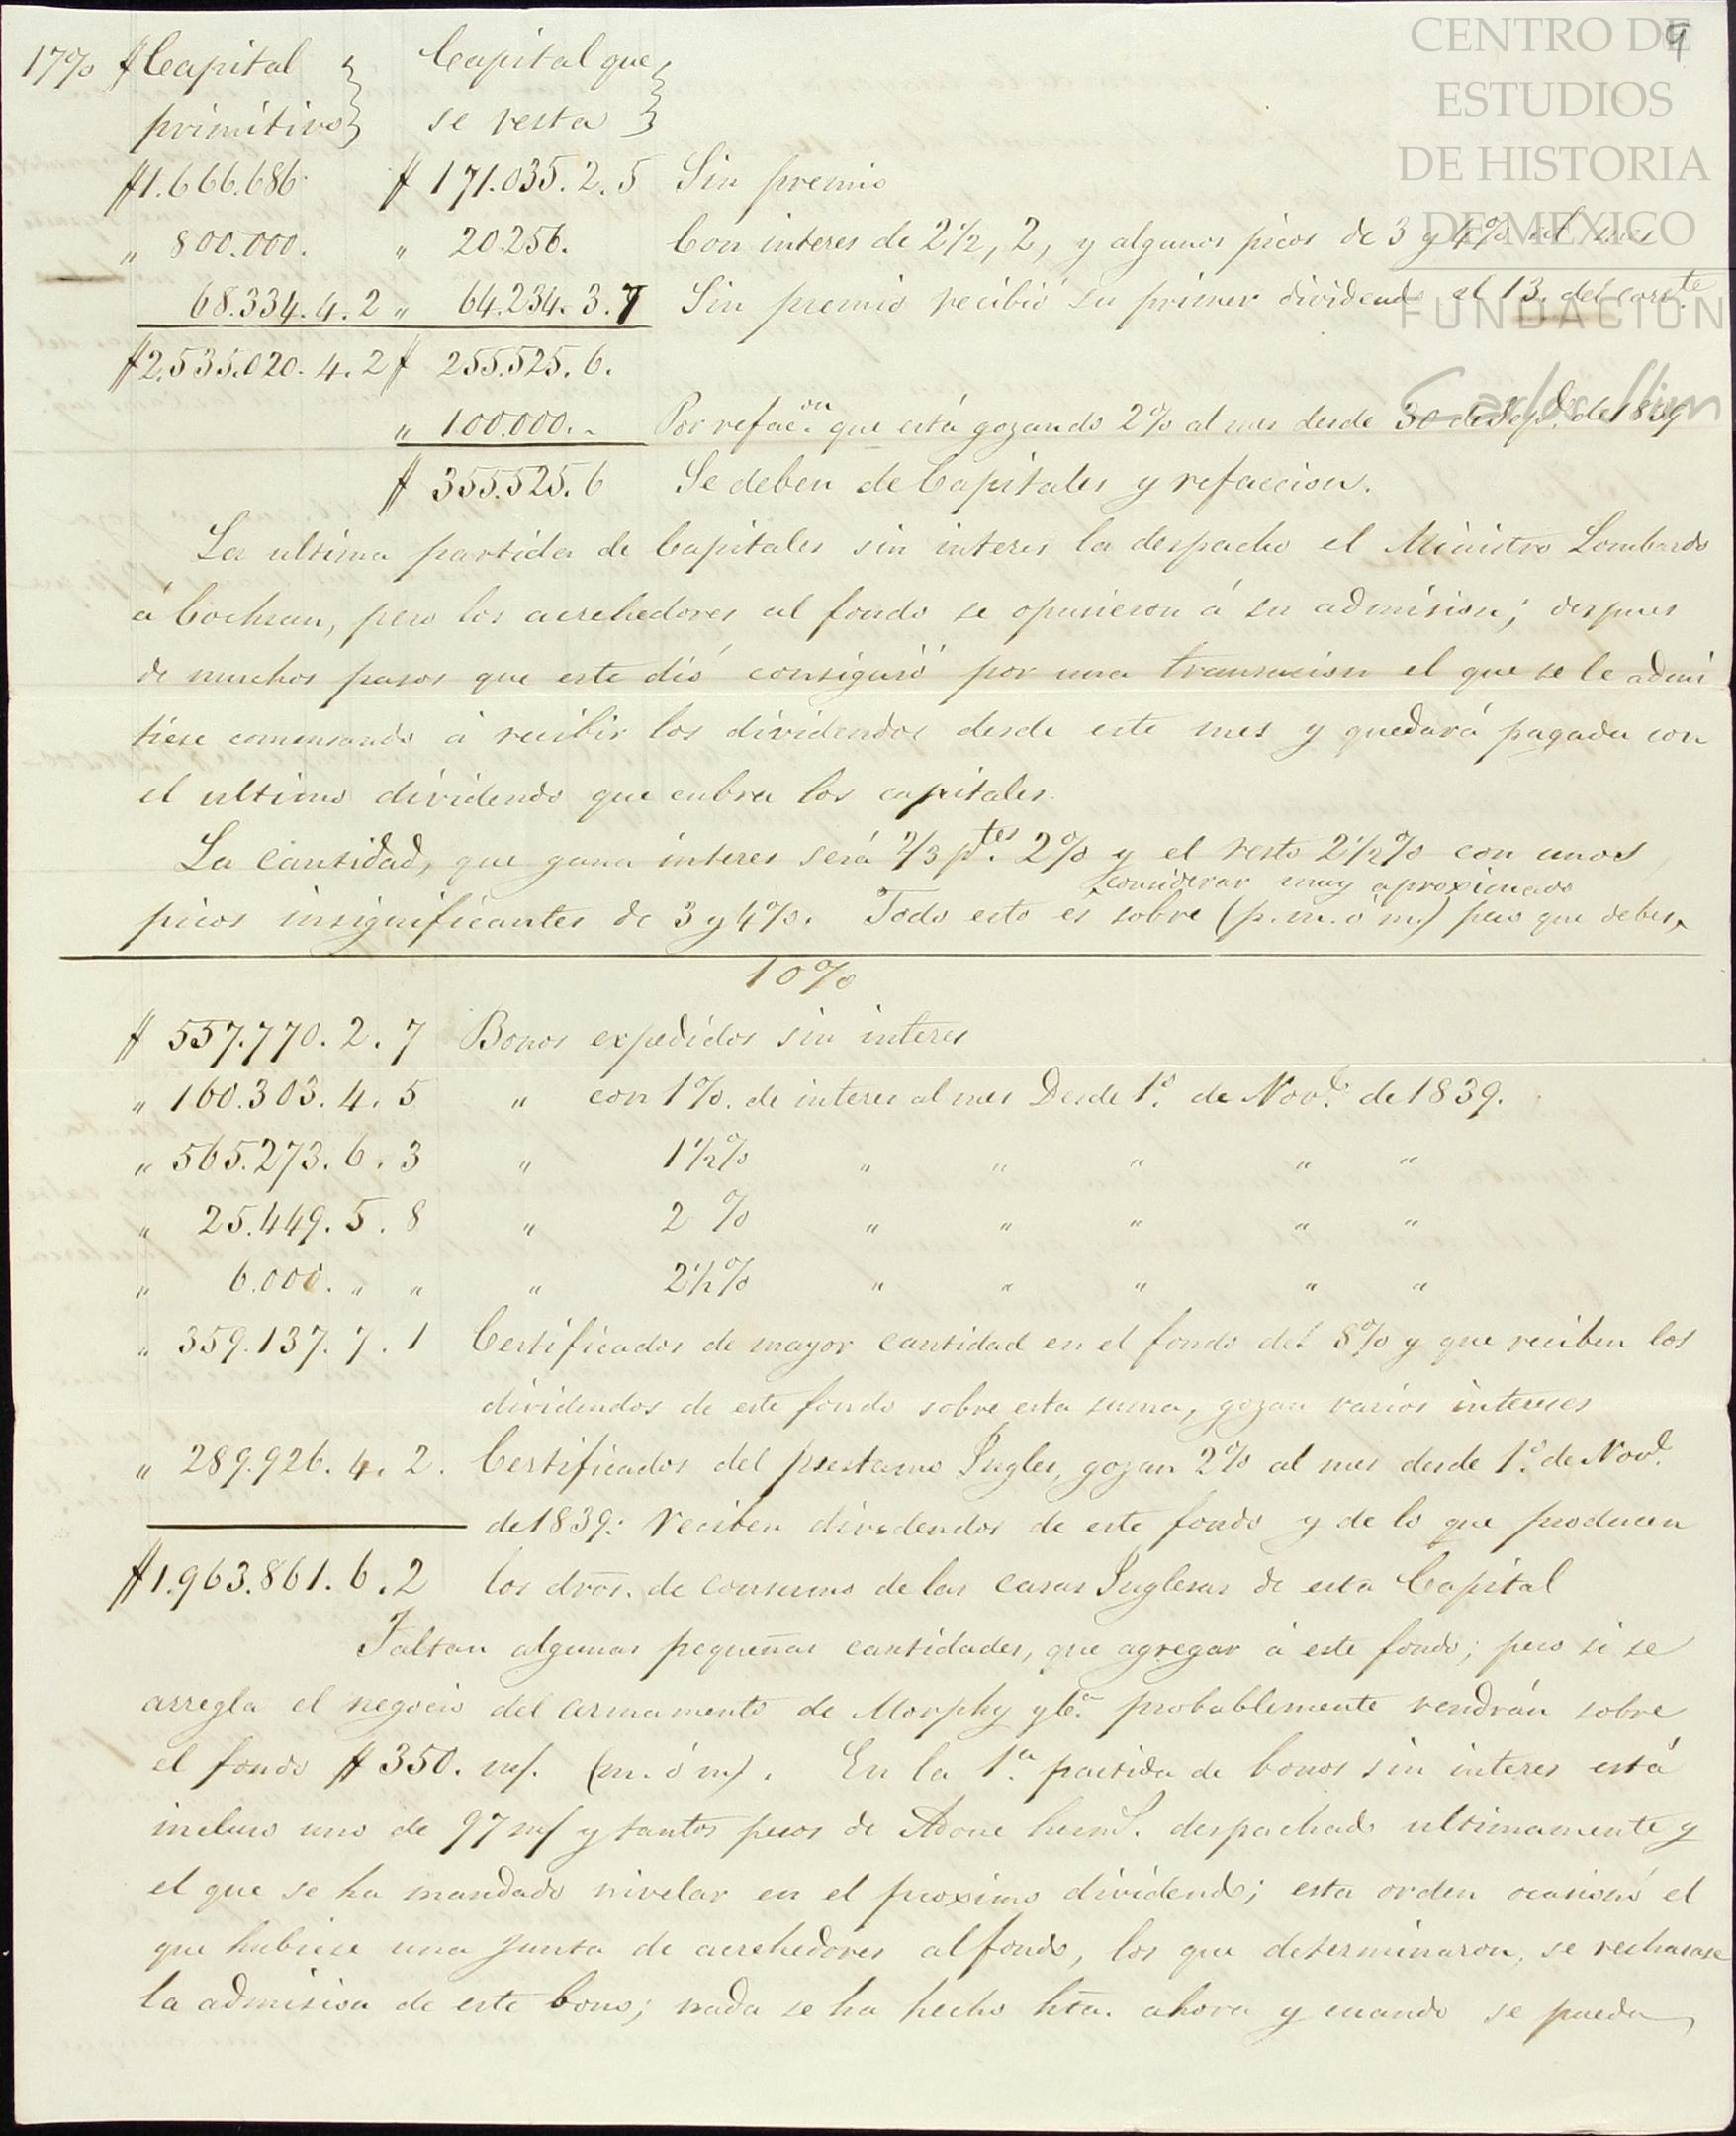 9
CENTRO DE
ESTUDIOS
DE HISTORIA
DE MEXICO
FUNDACION
Carlos Slim
17% $ Capital } Capital que }
primitivo } se resta }
$1.666.686. $ 171.035. 2. 5 Sin premio
" 800.000. " 20.256. Con interes de 2½, 2, y algunos picos de 3 y 4% al mes
68.334. 4. 2 " 64.234. 3. 7 Sin premio recibió su primer dividendo el 13. del corrte.
$2.535.020. 4. 2 $ 255.525. 6.
" 100.000. - Por refacon. que está gozando 2% al mes desde 30 de Sepe. de 1839
$ 355.525. 6 Se deben de Capitales y refaccion.
La ultima partida de Capitales sin interes la despacho el Ministro Lombardo
á Cochran, pero los acrehedores al fondo se opusieron á su admision; despues
de muchos pasos que este dió consiguió por una transacion el que se le admi
tiese comensando á recibir los dividendos desde este mes y quedará pagada con
el ultimo dividendo que cubra los capitales.
La cantidad, que gana interes será 2/3 ptes. 2% y el resto 2½% con unos
considerar muy aproximado
picos insignificantes de 3 y 4%. Todo esto es sobre (p. m. ó m.) pero que debes
10%
$ 557.770. 2. 7 Bonos expedidos sin interes
" 160.303. 4. 5 " con 1%. de interes al mes Desde 1º. de Nove. de 1839.
" 565.273. 6. 3 " 1½% " " " " "
" 25.449. 5. 8 " 2 % " " " " "
" 6.000. " " " 2½% " " " " "
" 359.137. 7. 1 Certificados de mayor cantidad en el fondo del 8% y que reciben los
dividendos de este fondo sobre esta suma, gozan varios intereses
" 289.926. 4. 2. Certificados del prestamo Ingles, gozan 2% al mes desde 1º. de Nove.
de 1839: reciben dividendos de este fondo y de lo que producen
$1.963.861. 6. 2 los dros. de consumo de las casas Inglesas de esta Capital
Faltan algunas pequeñas cantidades, que agregar á este fondo; pero si se
arregla el negocio del armamento de Morphy y Ca. probablemente vendrán sobre
el fondo $ 350. m/. (m. ó m). En la 1ª. partida de bonos sin interes está
incluso uno de 97 m/ y tantos pesos de Adoue hermS. despachado ultimamente y
el que se ha mandado nivelar en el proximo dividendo; esta orden ocasionó el
que hubiese una Junta de acrehedores al fondo, los que determinaron, se rechasase
la admision de este bono; nada se ha hecho hta. ahora y cuando se pueda